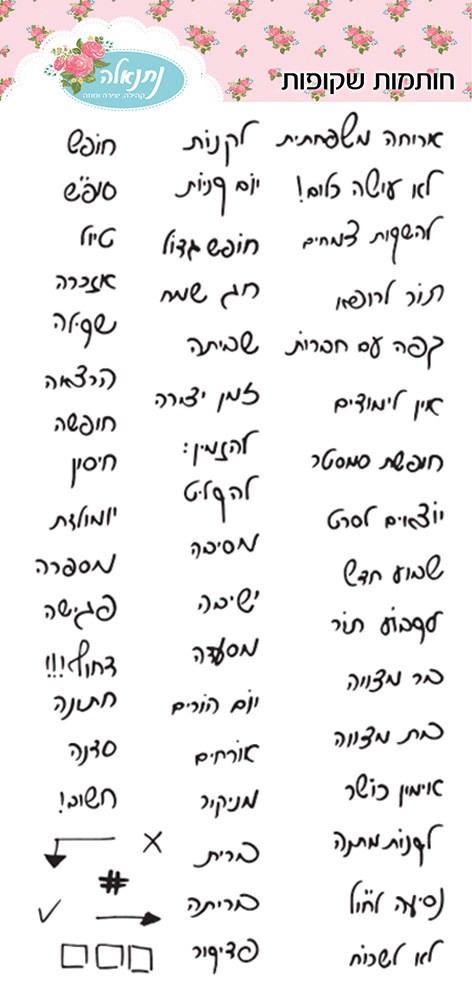 נתנאלה
קהילה, יצירה
חותמות שקופות
ארוחה משפחתית
לא עושה כלום!
להשקות צמחים
תור לרופא
קפה עם חברות
אין לימודים
חופשת סמסטר
יוצאים לסרט
שבוע חדש
לקבוע תור
בר מצווה
בת מצווה
אימון כושר
לקנות מתנה
נסיעה לחו"ל
לא לשכוח
לקנות
יום קניות
חופש גדול
חג שמח
שביתה
זמן יצירה
להזמין:
להקליט
מסיבה
ישיבה
מסעדה
יום הורים
אורחים
מניקור
ברית
בריתה
פדיקור
חופש
סופ"ש
טיול
אזכרה
שקילה
הרצאה
חופשה
חיסון
יומולדת
מספרה
פגישה
דחוף!!!
חתונה
סדנה
חשוב!
#